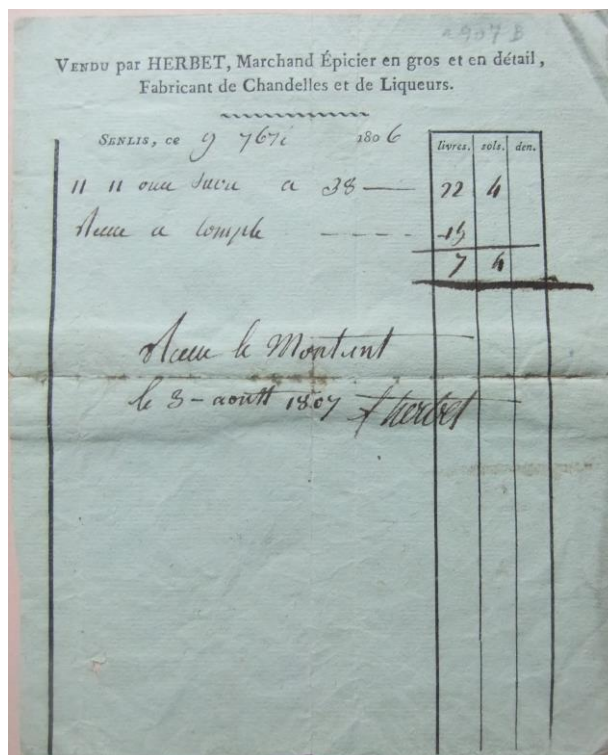 1907 B
VENDU par HERBET, Marchand Épicier en gros et en détail,
Fabricant de Chandelles et de Liqueurs.
SENLIS, ce 9 7bre 1806
livres. sols. den.
11 11 once sucre a 38 — 22 4
Recu a compte - - - - 15
7 4
Recu le Montant
le 8 - aoutt 1807 f herbet